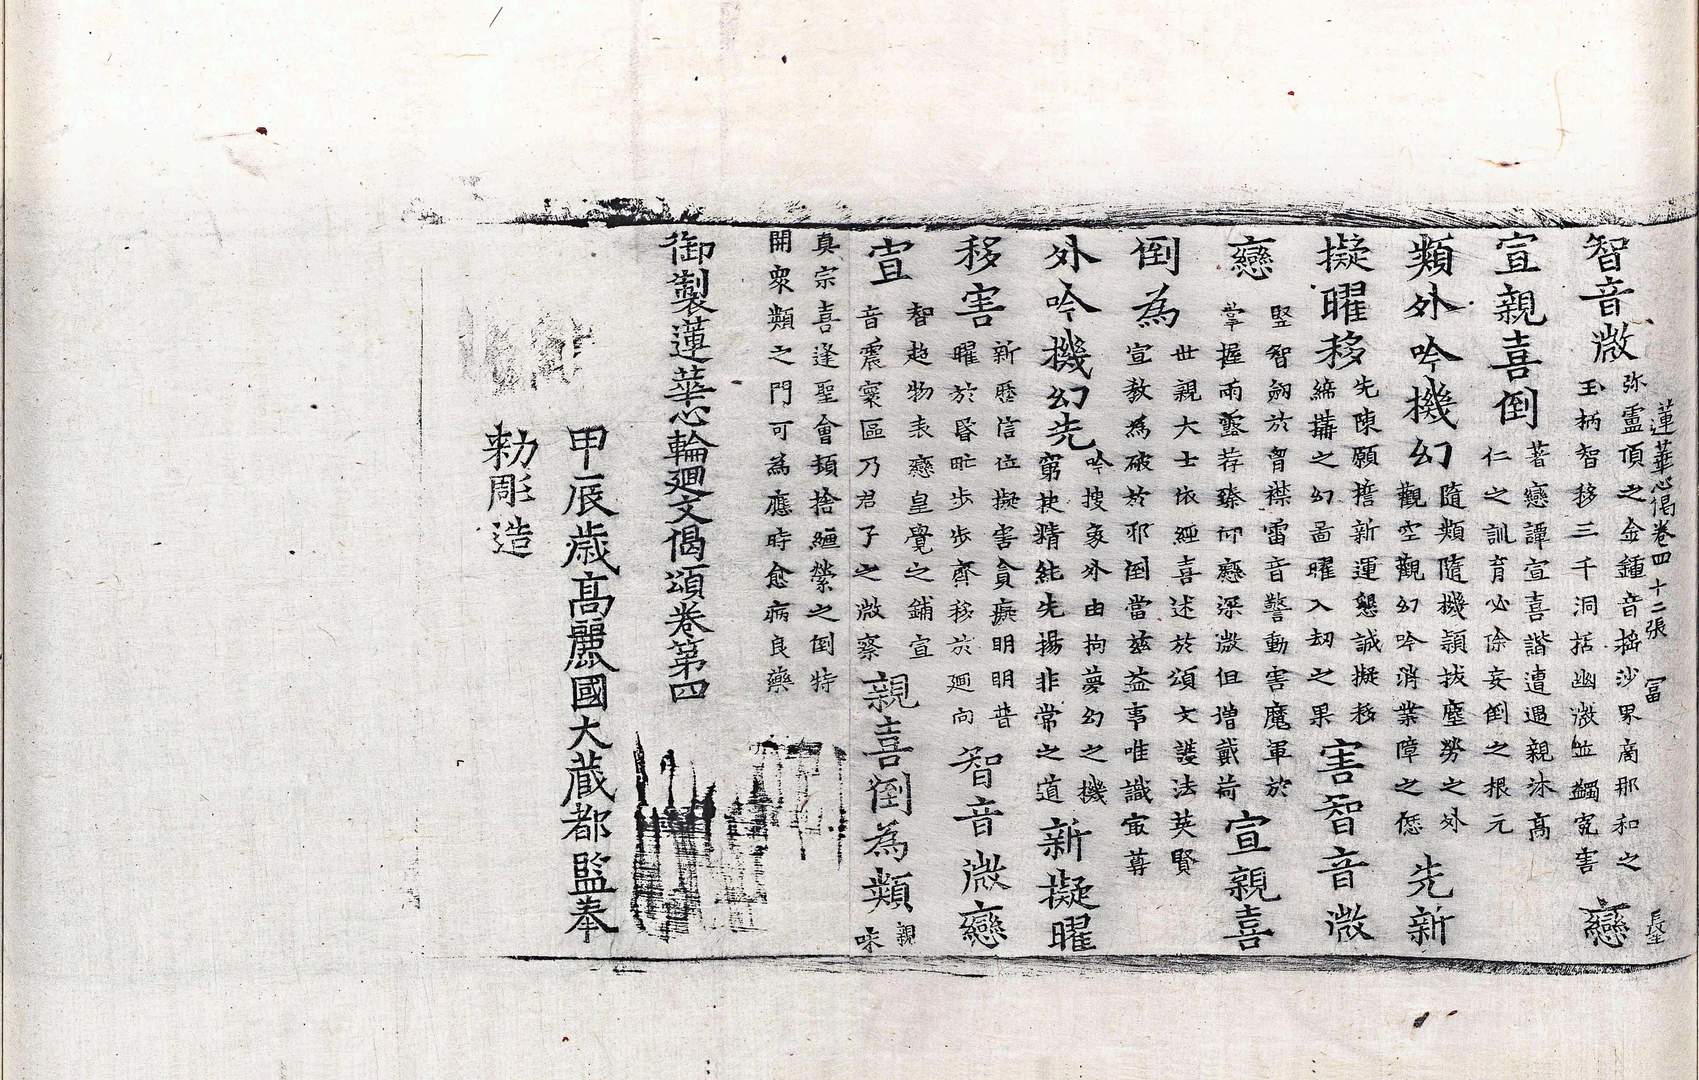 蓮華心偈卷四 十二張 冨 長生
智音微
弥盧頂之金鍾音搖沙界商那和之
玉柄智移三千洞括幽微並蠲寃害
戀
宣親喜倒
著戀譚宣喜諧遭遇親沐高
仁之訓育必除妄倒之根元
類外吟機幻
隨類隨機頴拔塵勞之外
觀空觀幻吟消業障之愆
先新
擬曜移
先陳願擔新運懇誠擬移
締搆之幻啚曜入刧之果
害智音微
戀
竪智劒於胷襟雷音警動害魔軍於
掌握雨露荐臻仰戀深微但増戴荷
宣親喜
倒為
世親大士依經喜述於頌文護法英賢
宣教為破於邪倒當兹益事唯識㝡尊
外吟機幻先
吟搜象外由拘夢幻之機
窮使精純先揚非常之道
新擬曜
移害
新瞻信位擬害貪癡明明普
曜於昏盲步步齊移於廻向
智音微戀
宣
智超物表戀皇覺之鋪宣
音震寰區乃君子之微察
親喜倒為類
親
味
真宗喜逢聖會頓捨纏縈之倒特
開衆類之門可為應時愈病良藥
御製蓮華心輪廻文偈頌卷第四
甲辰歳高麗國大藏都監奉
勑彫造